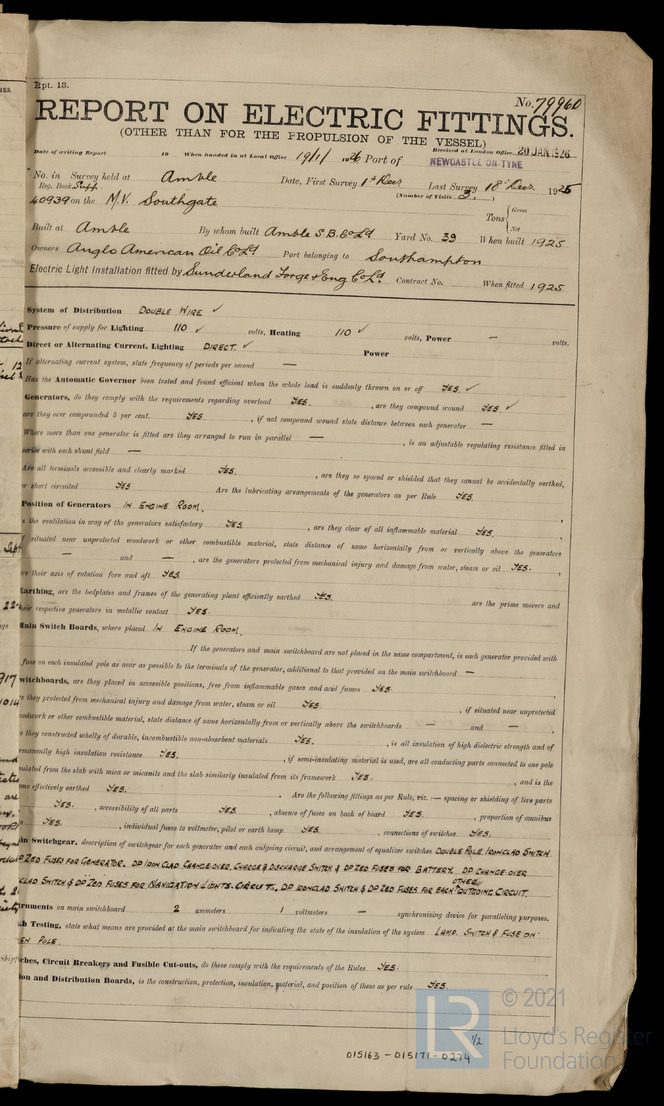 Rpt. 13.
No. 79960
REPORT ON ELECTRIC FITTINGS.
(OTHER THAN FOR THE PROPULSION OF THE VESSEL)
Date of writing Report 19 When handed in at Local Office 19/1/ 1926 Port of Received at London Office 20 JAN 1926
NEWCASTLE-ON-TYNE
No. in Survey held at Amble Date, First Survey 1st Decr Last Survey 18th Decr. 1925
Reg. Book. Supp. (Number of Visits 3.)
40939 on the M.V. Southgate Tons { Gross Net
Built at Amble By whom built Amble S.B. Co Ld Yard No. 39 When built 1925
Owners Anglo American Oil Co Ld Port belonging to Southampton
Electric Light Installation fitted by Sunderland Forge & Eng Co Ld. Contract No. When fitted 1925
System of Distribution DOUBLE WIRE ✓
Pressure of supply for Lighting 110 ✓ volts, Heating 110 ✓ volts, Power — volts.
Direct or Alternating Current, Lighting DIRECT. ✓ Power
If alternating current system, state frequency of periods per second —
Has the Automatic Governor been tested and found efficient when the whole load is suddenly thrown on or off YES. ✓
Generators, do they comply with the requirements regarding overload YES. , are they compound wound YES. ✓
are they over compounded 5 per cent. YES. , if not compound wound state distance between each generator —
Where more than one generator is fitted are they arranged to run in parallel — , is an adjustable regulating resistance fitted in
series with each shunt field —
Are all terminals accessible and clearly marked YES. , are they so spaced or shielded that they cannot be accidentally earthed,
or short circuited YES Are the lubricating arrangements of the generators as per Rule YES.
Position of Generators IN ENGINE ROOM.
is the ventilation in way of the generators satisfactory YES. , are they clear of all inflammable material YES.
situated near unprotected woodwork or other combustible material, state distance of same horizontally from or vertically above the generators
— and — , are the generators protected from mechanical injury and damage from water, steam or oil YES.
are their axis of rotation fore and aft YES.
Earthing, are the bedplates and frames of the generating plant efficiently earthed YES. are the prime movers and
their respective generators in metallic contact YES.
Main Switch Boards, where placed IN ENGINE ROOM.
If the generators and main switchboard are not placed in the same compartment, is each generator provided with
fuse on each insulated pole as near as possible to the terminals of the generator, additional to that provided on the main switchboard —
Switchboards, are they placed in accessible positions, free from inflammable gases and acid fumes YES
are they protected from mechanical injury and damage from water, steam or oil YES. , if situated near unprotected
woodwork or other combustible material, state distance of same horizontally from or vertically above the switchboards — and —
are they constructed wholly of durable, incombustible non-absorbent materials YES. , is all insulation of high dielectric strength and of
permanently high insulation resistance YES. , if semi-insulating material is used, are all conducting parts connected to one pole
insulated from the slab with mica or micanite and the slab similarly insulated from its framework YES. , and is the
frame effectively earthed YES. Are the following fittings as per Rule, viz.:— spacing or shielding of live parts
YES. , accessibility of all parts YES. , absence of fuses on back of board YES. , proportion of omnibus
YES. , individual fuses to voltmeter, pilot or earth lamp YES. , connections of switches YES.
Main Switchgear, description of switchgear for each generator and each outgoing circuit, and arrangement of equalizer switches DOUBLE POLE IRONCLAD SWITCH
& DP ZED FUSES FOR GENERATOR. DP IRON CLAD CHANGEOVER, CHARGE & DISCHARGE SWITCH & DP ZED FUSES FOR BATTERY, DP CHANGE OVER
CLAD SWITCH & DP ZED FUSES FOR NAVIGATION LIGHTS. CIRCUIT. DP IRONCLAD SWITCH & DP ZED FUSES FOR EACH OTHER OUTGOING CIRCUIT.
Instruments on main switchboard 2 ammeters 1 voltmeters — synchronising device for paralleling purposes.
Earth Testing, state what means are provided at the main switchboard for indicating the state of the insulation of the system LAMP. SWITCH & FUSE ON
POLE.
Switches, Circuit Breakers and Fusible Cut-outs, do these comply with the requirements of the Rules YES.
Section and Distribution Boards, is the construction, protection, insulation, material, and position of these as per rule YES.
1/2
015163-015171-0274
LR
© 2021
Lloyd's Register
Foundation